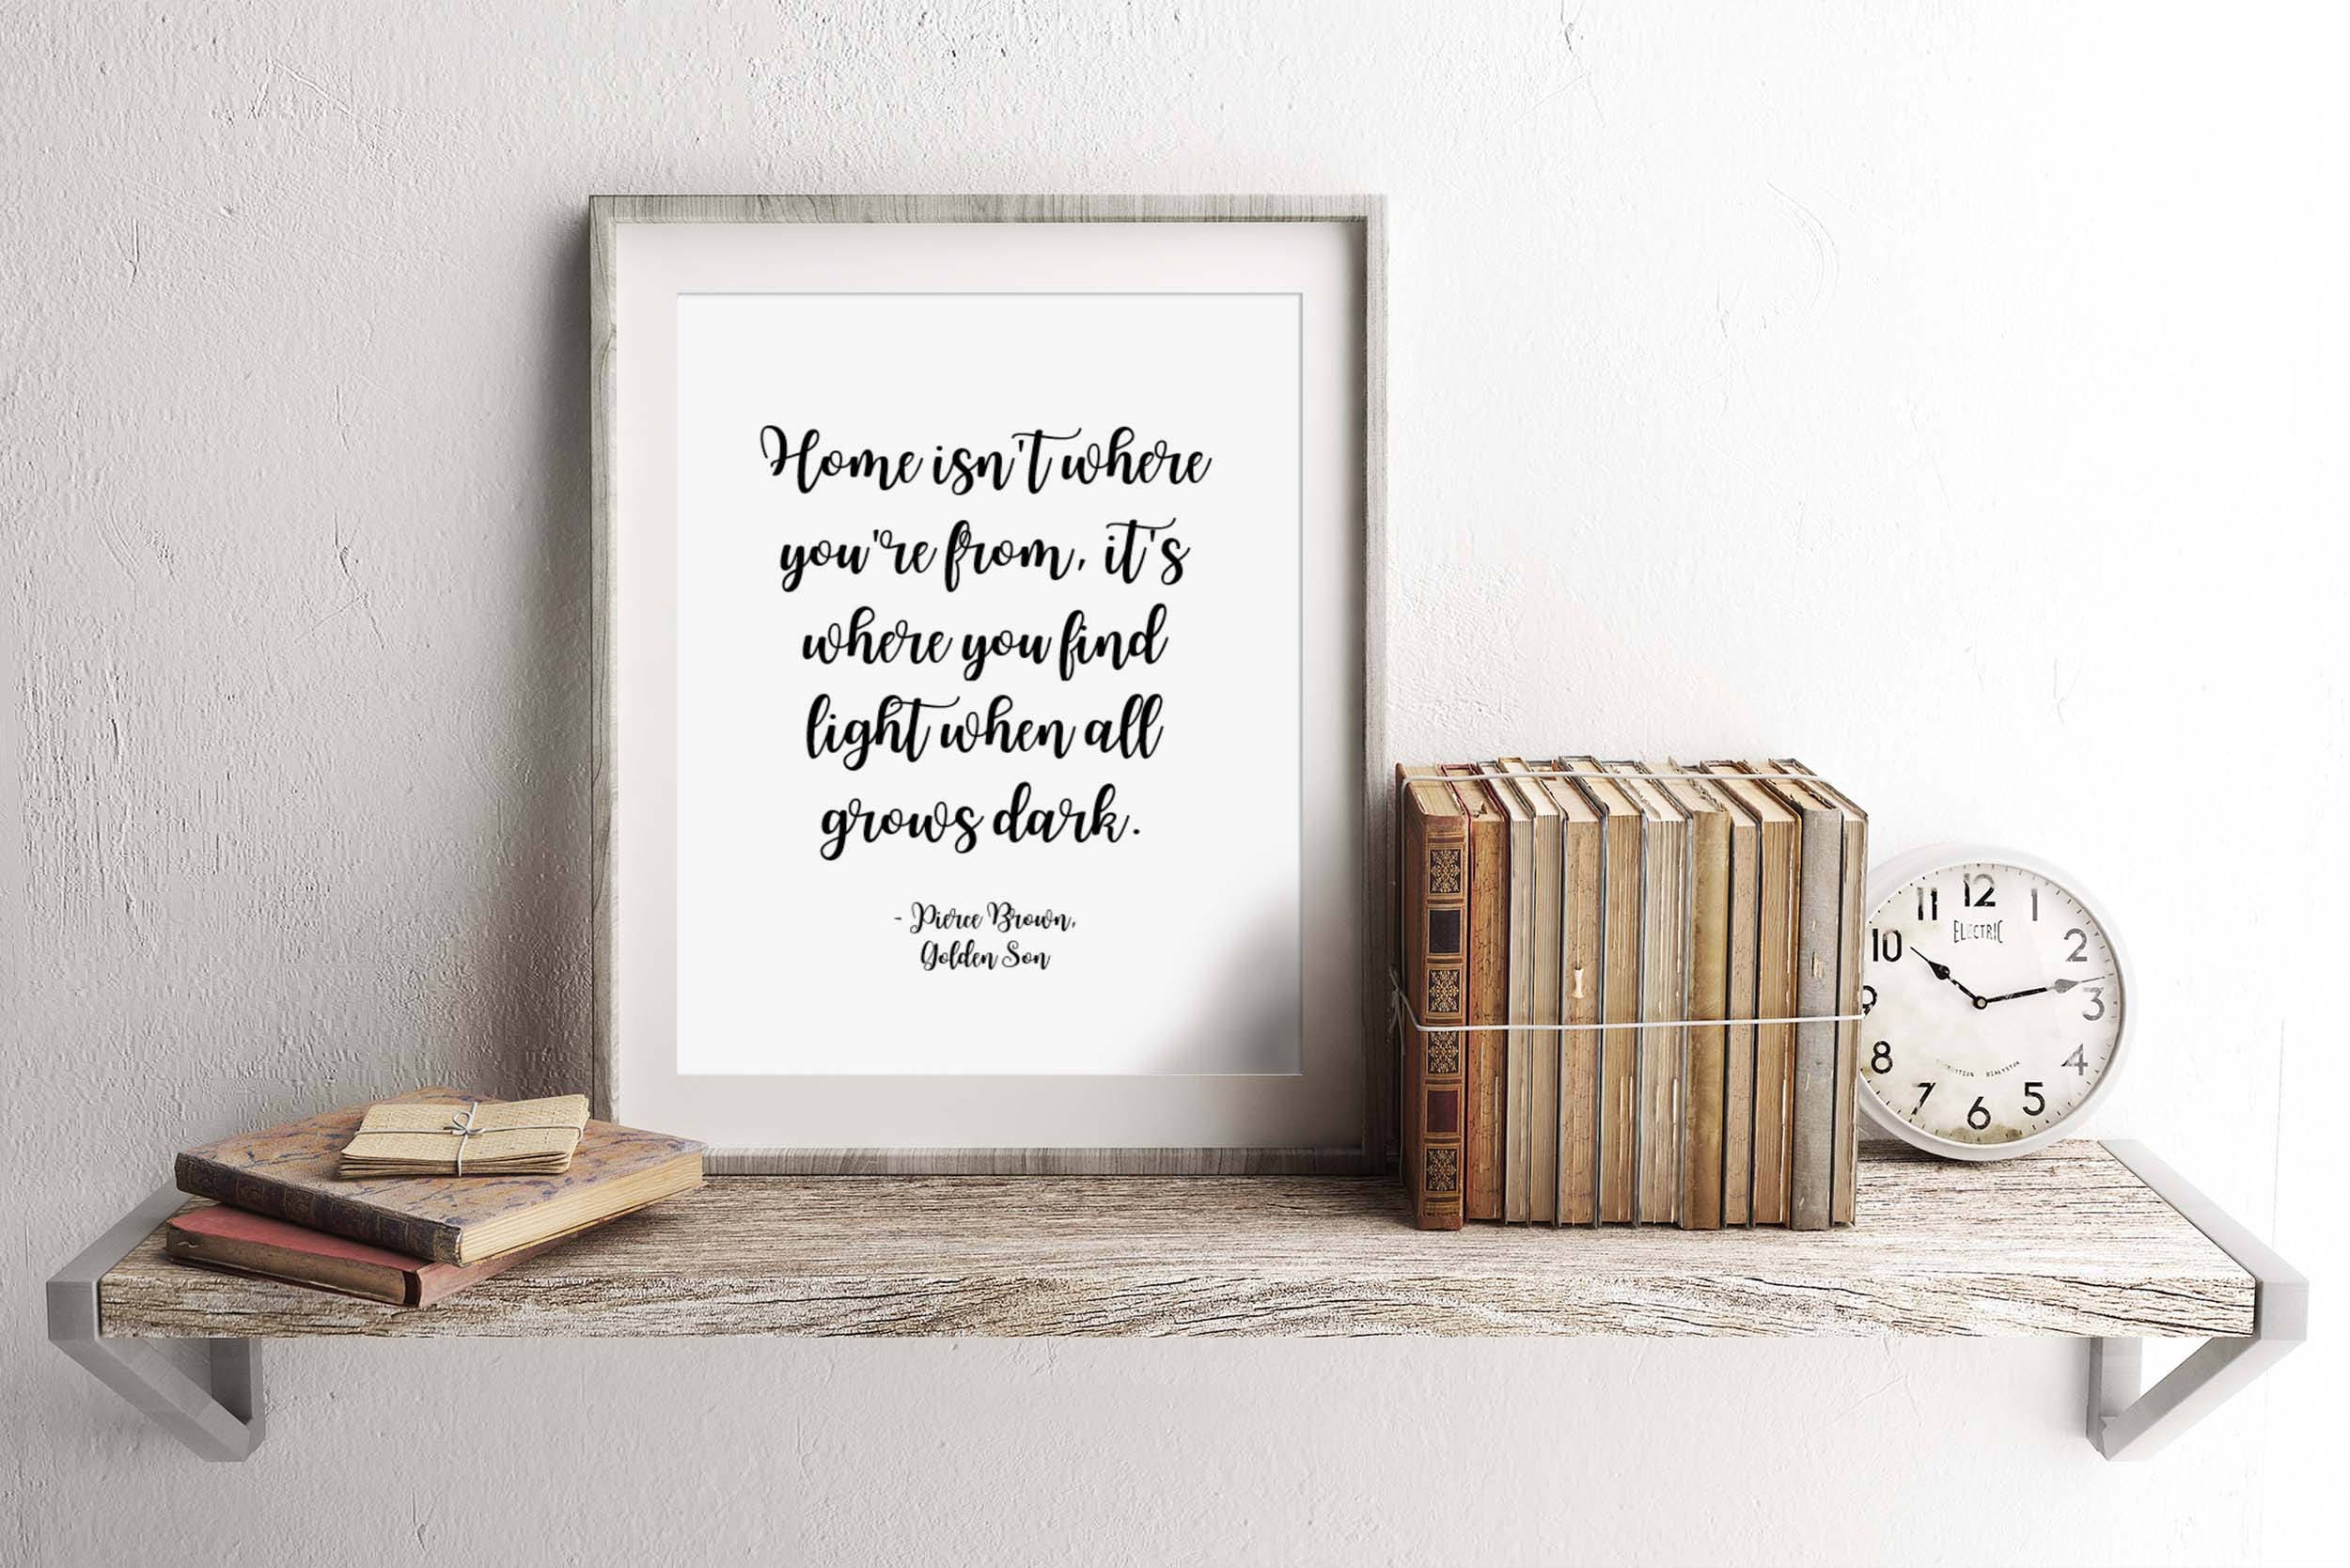 Home isn't where
you're from, it's
where you find
light when all
grows dark.
- Pierce Brown,
Golden Son
11 12 1
ELECTRIC
10 2
9 3
8 4
7 6 5